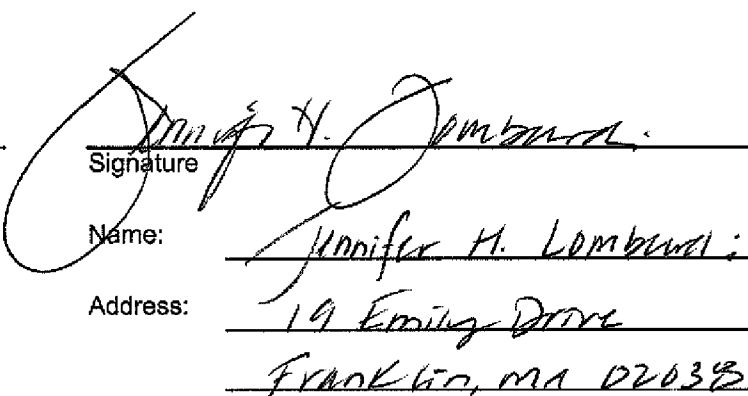 Jennifer H. Lombardi
Signature
Name: Jennifer H. Lombardi
Address: 19 Emily Drive
Franklin, MA 02038